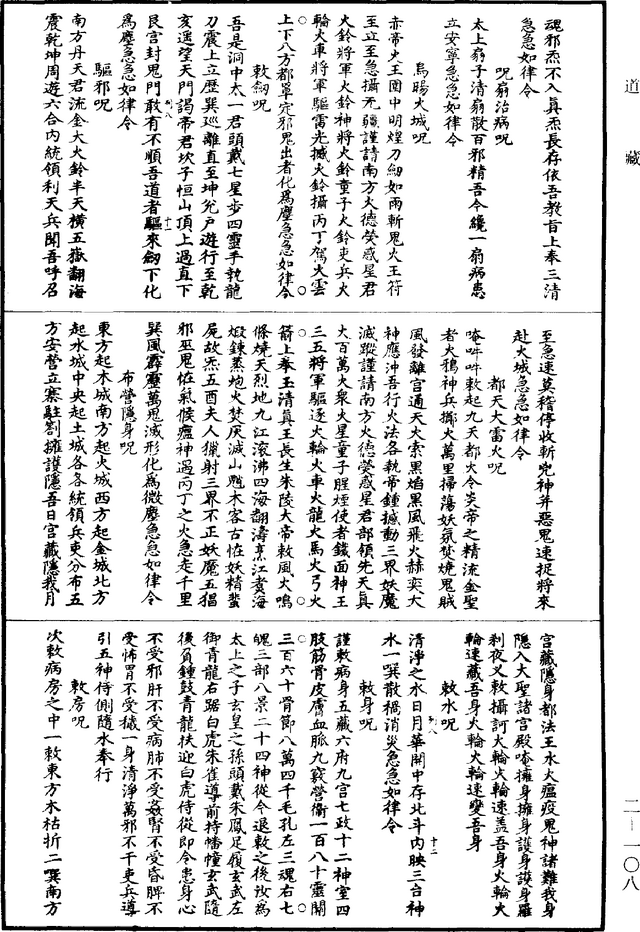 道藏
魂邪炁不入眞炁長存依吾教旨上奉三清
急急如律令
呪扇治病呪
太上扇子清扇散百邪精吾令纔一扇病患
立安寧急急如律令
烏暘火城呪
赤帝火王圄中明煌刀劒如雨斬鬼火王符
王立至急攝无疆謹請南方火德熒惑星君
火鈴將軍火鈴神將火鈴童子火鈴吏兵火
輪火車將軍驅雷光撼火鈴攝丙丁駕火雲
上下八方都罩定邪鬼出者化爲塵急急如律令
敕劒呪
吾是洞中太一君頭戴七星步四靈手執龍
刀震上立歷巽巡離直至坤兊戶遊行至乾
亥遥望天門謁帝君坎子恒山頂上過直下
艮宫封鬼門敢有不順吾道者驅來劒下化
爲塵急急如律令
驅邪呪
南方丹天君流金大火鈴半天橫五嶽翻海
震乾坤周遊六合内統領利天兵聞吾呼召
至急速莫稽停收斬兇神并惡鬼速捉將來
赴火城急急如律令
都天大雷火呪
唵吽吽敕起九天都火令炎帝之精流金聖
者火鴉神兵擲火萬里掃蕩妖氛焚燒鬼賊
風發離宫通天火索黑熖黑風飛火赫奕大
神應沖吾行火法各執帝鍾撼動三界妖魔
滅蹤謹請南方火德熒惑星君部領先天真
大百萬火衆火星童子腥煙使者鐵面神王
三五將軍驅逐火輪火車火龍火馬火弓火
箭上奉玉清真王長生朱陵大帝敕風火鳴
條燒天烈地九江滚沸四海翻濤烹江煑海
煅鍊蒸炮火焚戾滅山魈木客古恠妖精蜚
屍故炁五酉夫人獵射三界不正妖魔五猖
邪巫鬼恠氣候瘟神過丙丁之火急走千里
巽風霹靂萬鬼滅形化爲微塵急急如律令
布營隱身呪
東方起木城南方起火城西方起金城北方
起水城中央起土城各各統領兵吏分布五
方安營立寨駐劄擁護隱吾日宫藏隱我月
宫藏隱身都法王水火瘟疫鬼神諸難我身
隱入大聖諸宫殿唵擁身擁身護身護身羅
刹夜叉敕攝訶火輪火輪速盖吾身火輪火
輪速藏吾身火輪火輪速變吾身
敕水呪
清淨之水日月華開中存北斗内映三台神
水一噀散禍消災急急如律令
敕身呪
謹敕病身五藏六府九宫七政十二神室四
肢筋骨皮膚血脈九竅營衛一百八十靈關
三百六十骨節八萬四千毛孔左三魂右七
魄三部八景二十四神從今退敕之後汝為
太上之子玄皇之孫頭戴朱鳳足履玄武左
御青龍右踞白虎朱雀導前持幡幢玄武隨
後負鍾鼓青龍扶迎白虎侍從即令患身心
不受邪肝不受病肺不受姦腎不受昏脾不
受怖胃不受穢一身清淨萬邪不干吏兵導
引五神侍側隨水奉行
敕房呪
次敕病房之中一敕東方木枯折二噀南方
二一一〇八